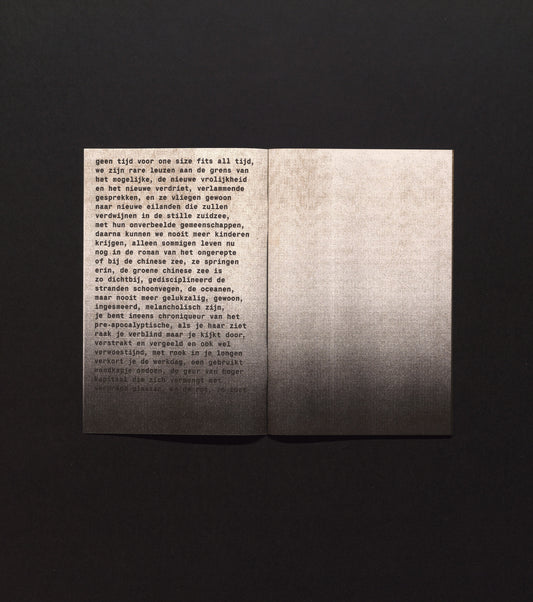 geen tijd voor one size fits all tijd,
we zijn rare leuzen aan de grens van
het mogelijke, de nieuwe vrolijkheid
en het nieuwe verdriet, verlammende
gesprekken, en ze vliegen gewoon
naar nieuwe eilanden die zullen
verdwijnen in de stille zuidzee,
met hun onverbeelde gemeenschappen,
daarna kunnen we nooit meer kinderen
krijgen, alleen sommigen leven nu
nog in de roman van het ongerepte
of bij de chinese zee, ze springen
erin, de groene chinese zee is
zo dichtbij, gedisciplineerd de
stranden schoonvegen, de oceanen,
maar nooit meer gelukzalig, gewoon,
ingesmeerd, melancholisch zijn,
je bent ineens chroniqueur van het
pre-apocalyptische, als je haar ziet
raak je verblind maar je kijkt door,
verstrakt en vergeeld en ook wel
verwoestijnd, met rook in je longen
verkort je de werkdag, een gebruikt
mondkapje omdoen, de geur van hoger
kapitaal die zich vermengt met